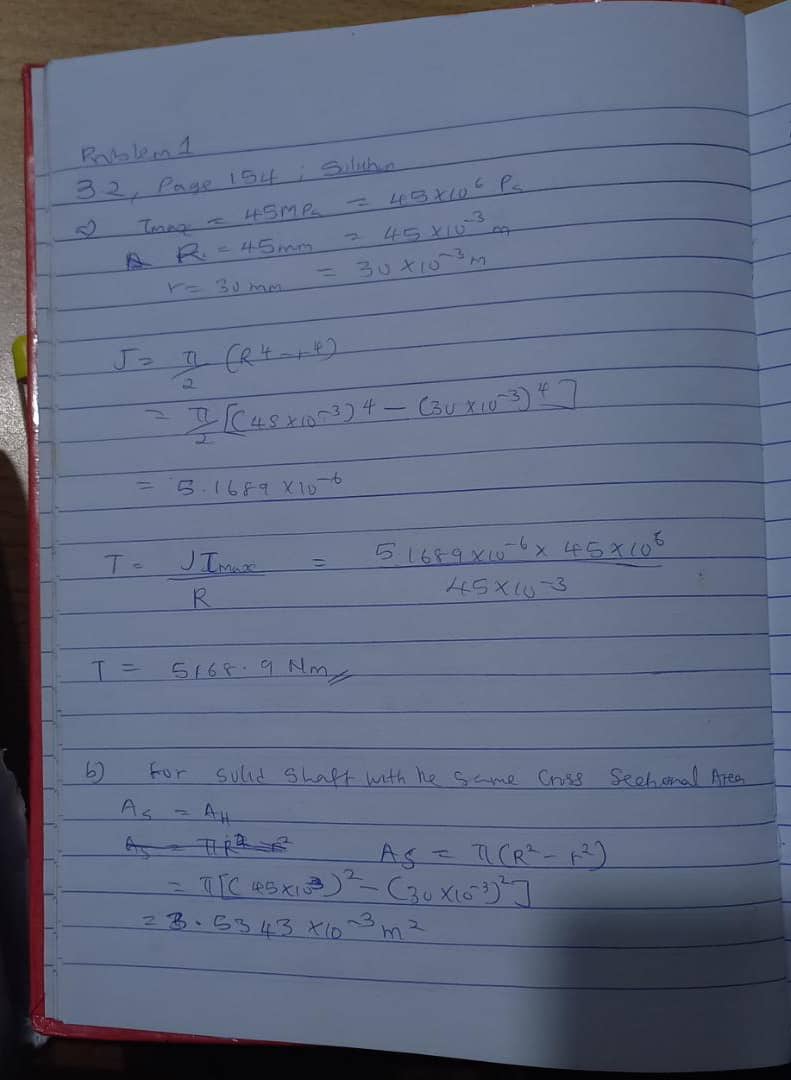 Problem 1
3.2, Page 154, Solution
a) τmax = 45MPa = 45 x 10^6 Pa
R = 45mm = 45 x 10^-3 m
r = 30 mm = 30 x 10^-3 m
J = π/2 (R^4 - r^4)
= π/2 [(45 x 10^-3)^4 - (30 x 10^-3)^4]
= 5.1689 x 10^-6
T = Jτmax/R = (5.1689 x 10^-6 x 45 x 10^6)/(45 x 10^-3)
T = 5168.9 Nm
b) for solid shaft with he same Cross Sectional Area
As = AH
As = π(R^2 - r^2)
= π[(45 x 10^-3)^2 - (30 x 10^-3)^2]
= 3.5343 x 10^-3 m^2